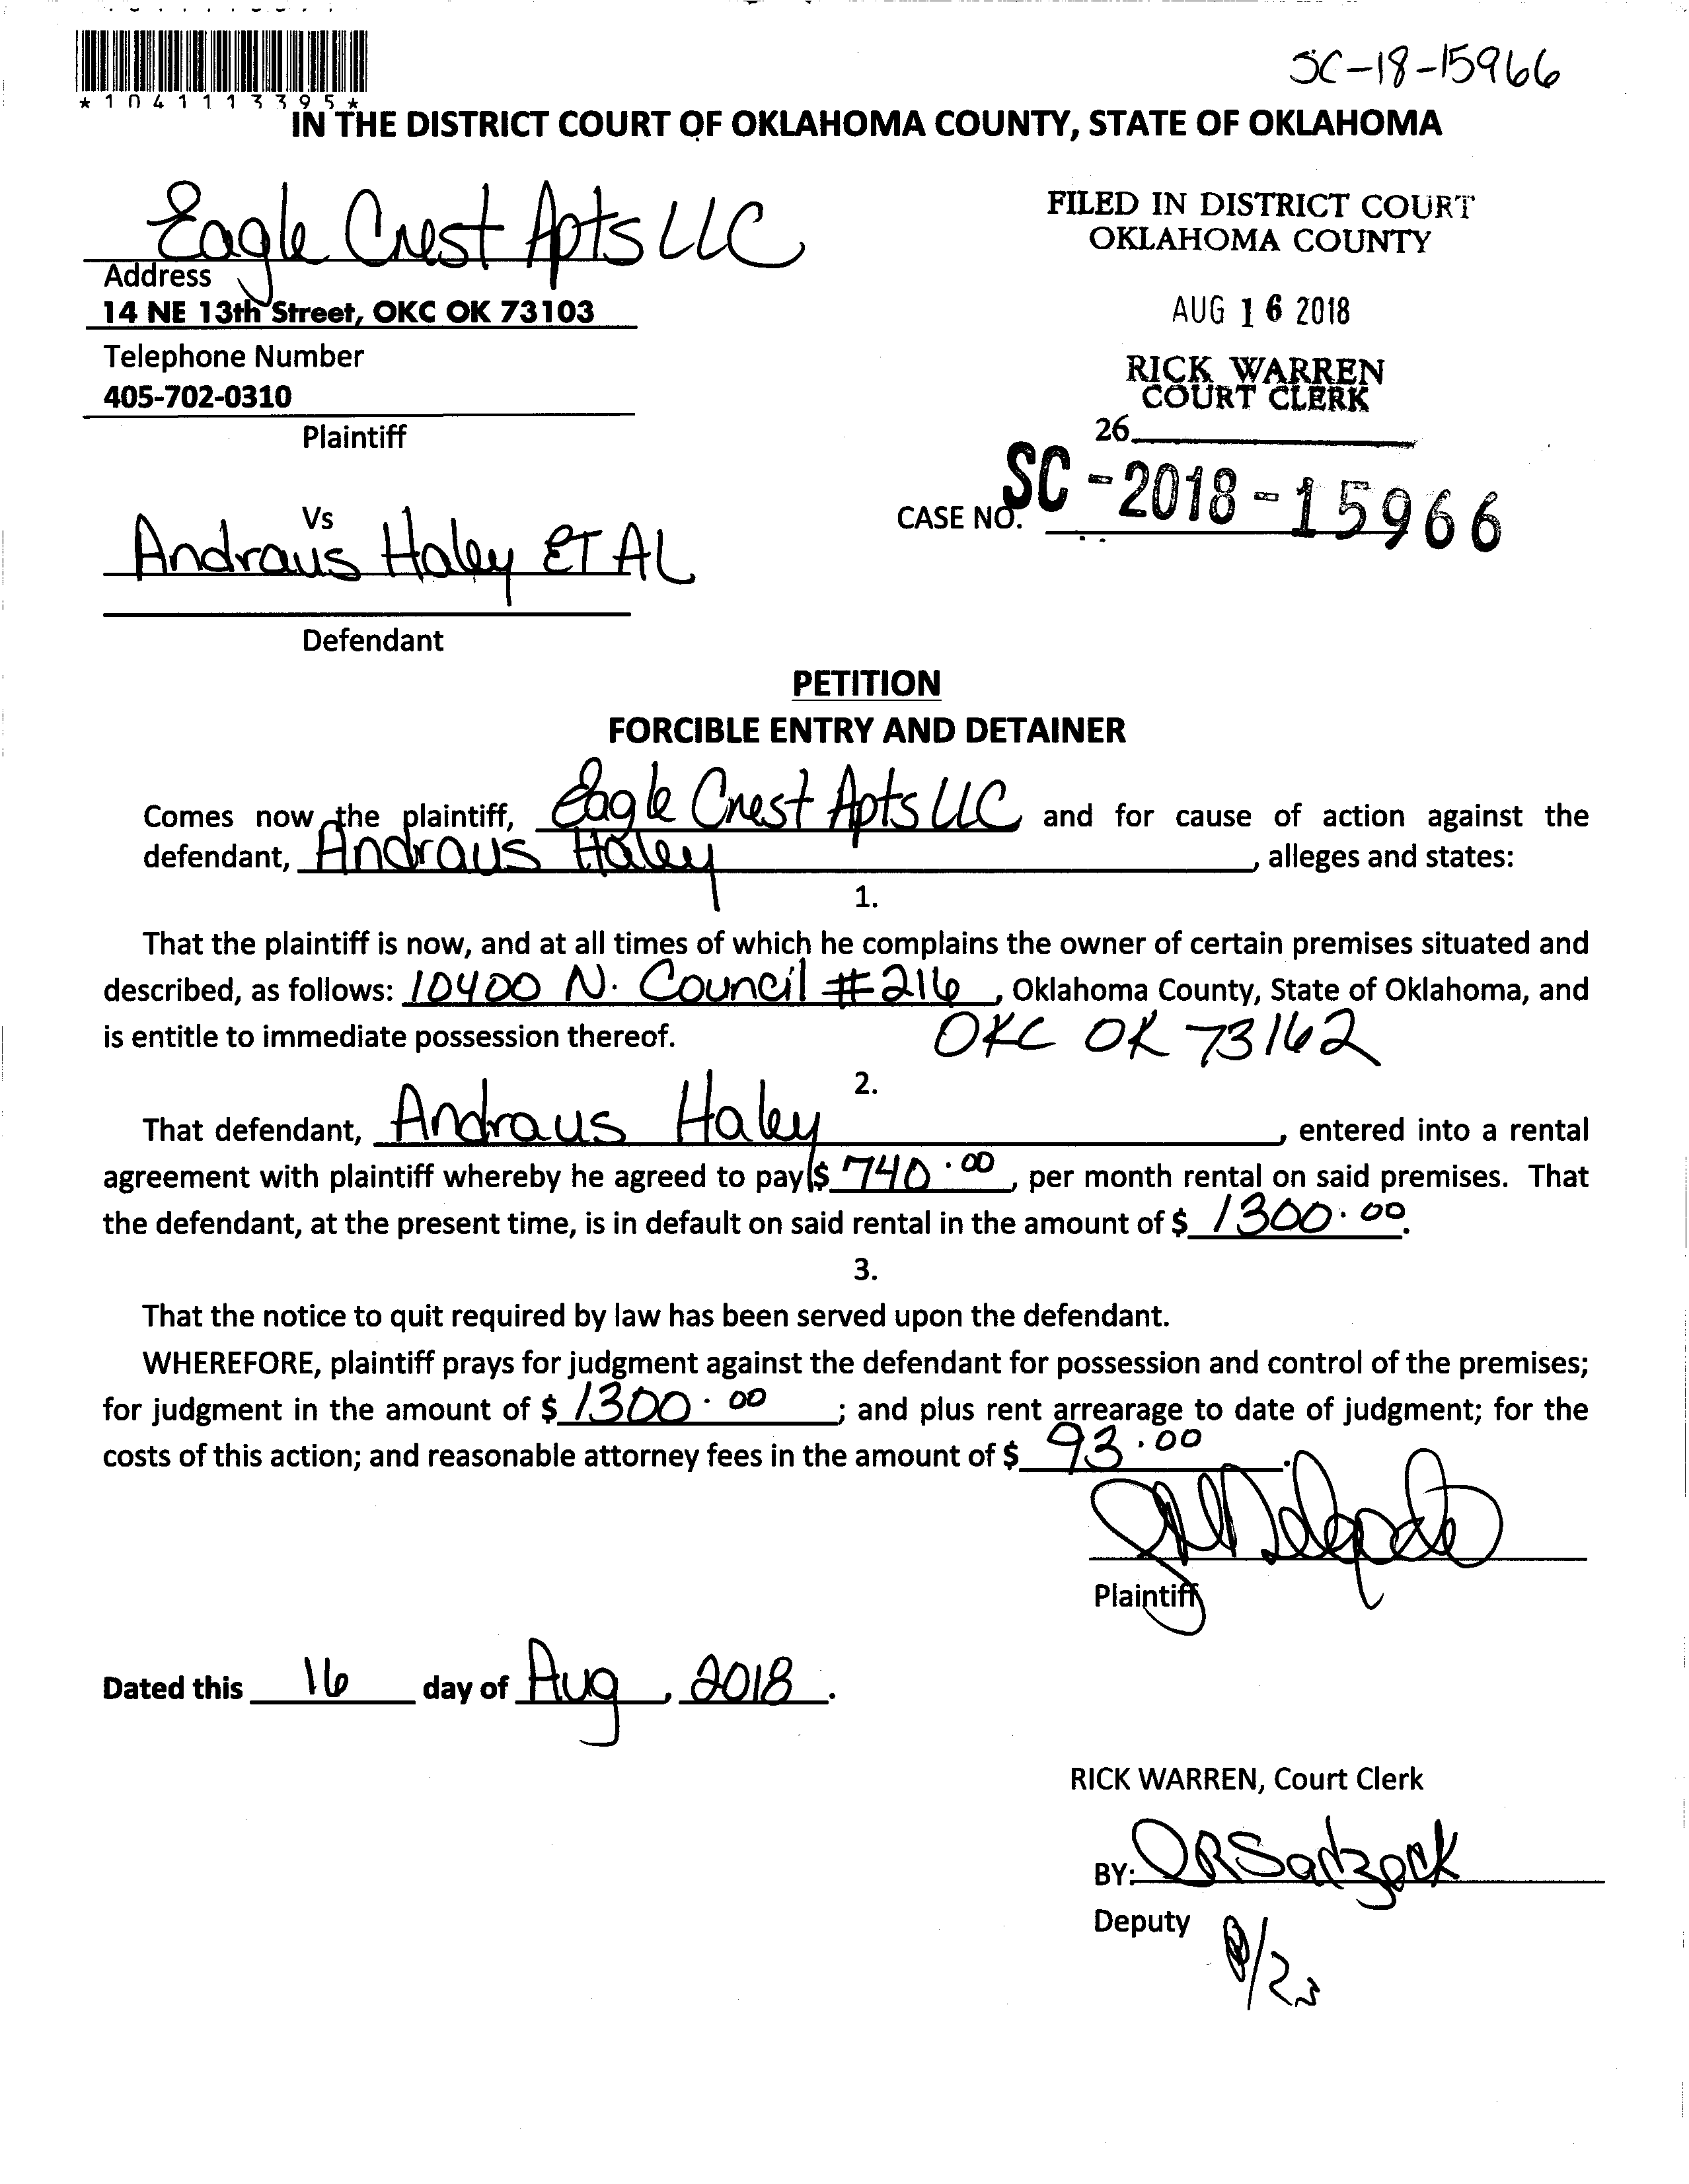 SC-18-15966
*1041113395*
IN THE DISTRICT COURT OF OKLAHOMA COUNTY, STATE OF OKLAHOMA
Eagle Crest Apts LLC
Address
14 NE 13th Street, OKC OK 73103
Telephone Number
405-702-0310
Plaintiff
FILED IN DISTRICT COURT
OKLAHOMA COUNTY
AUG 16 2018
RICK WARREN
COURT CLERK
26
CASE NO. SC-2018-15966
Vs
Andraus Haley ET AL
Defendant
PETITION
FORCIBLE ENTRY AND DETAINER
Comes now the plaintiff, Eagle Crest Apts LLC and for cause of action against the
defendant, Andraus Haley, alleges and states:
1.
That the plaintiff is now, and at all times of which he complains the owner of certain premises situated and
described, as follows: 10400 N. Council #216, Oklahoma County, State of Oklahoma, and
is entitle to immediate possession thereof. OKC OK 73162
2.
That defendant, Andraus Haley, entered into a rental
agreement with plaintiff whereby he agreed to pay $ 740.00, per month rental on said premises. That
the defendant, at the present time, is in default on said rental in the amount of $ 1300.00.
3.
That the notice to quit required by law has been served upon the defendant.
WHEREFORE, plaintiff prays for judgment against the defendant for possession and control of the premises;
for judgment in the amount of $ 1300.00; and plus rent arrearage to date of judgment; for the
costs of this action; and reasonable attorney fees in the amount of $ 93.00.
Plaintiff
Dated this 16 day of Aug, 2018.
RICK WARREN, Court Clerk
BY:
Deputy